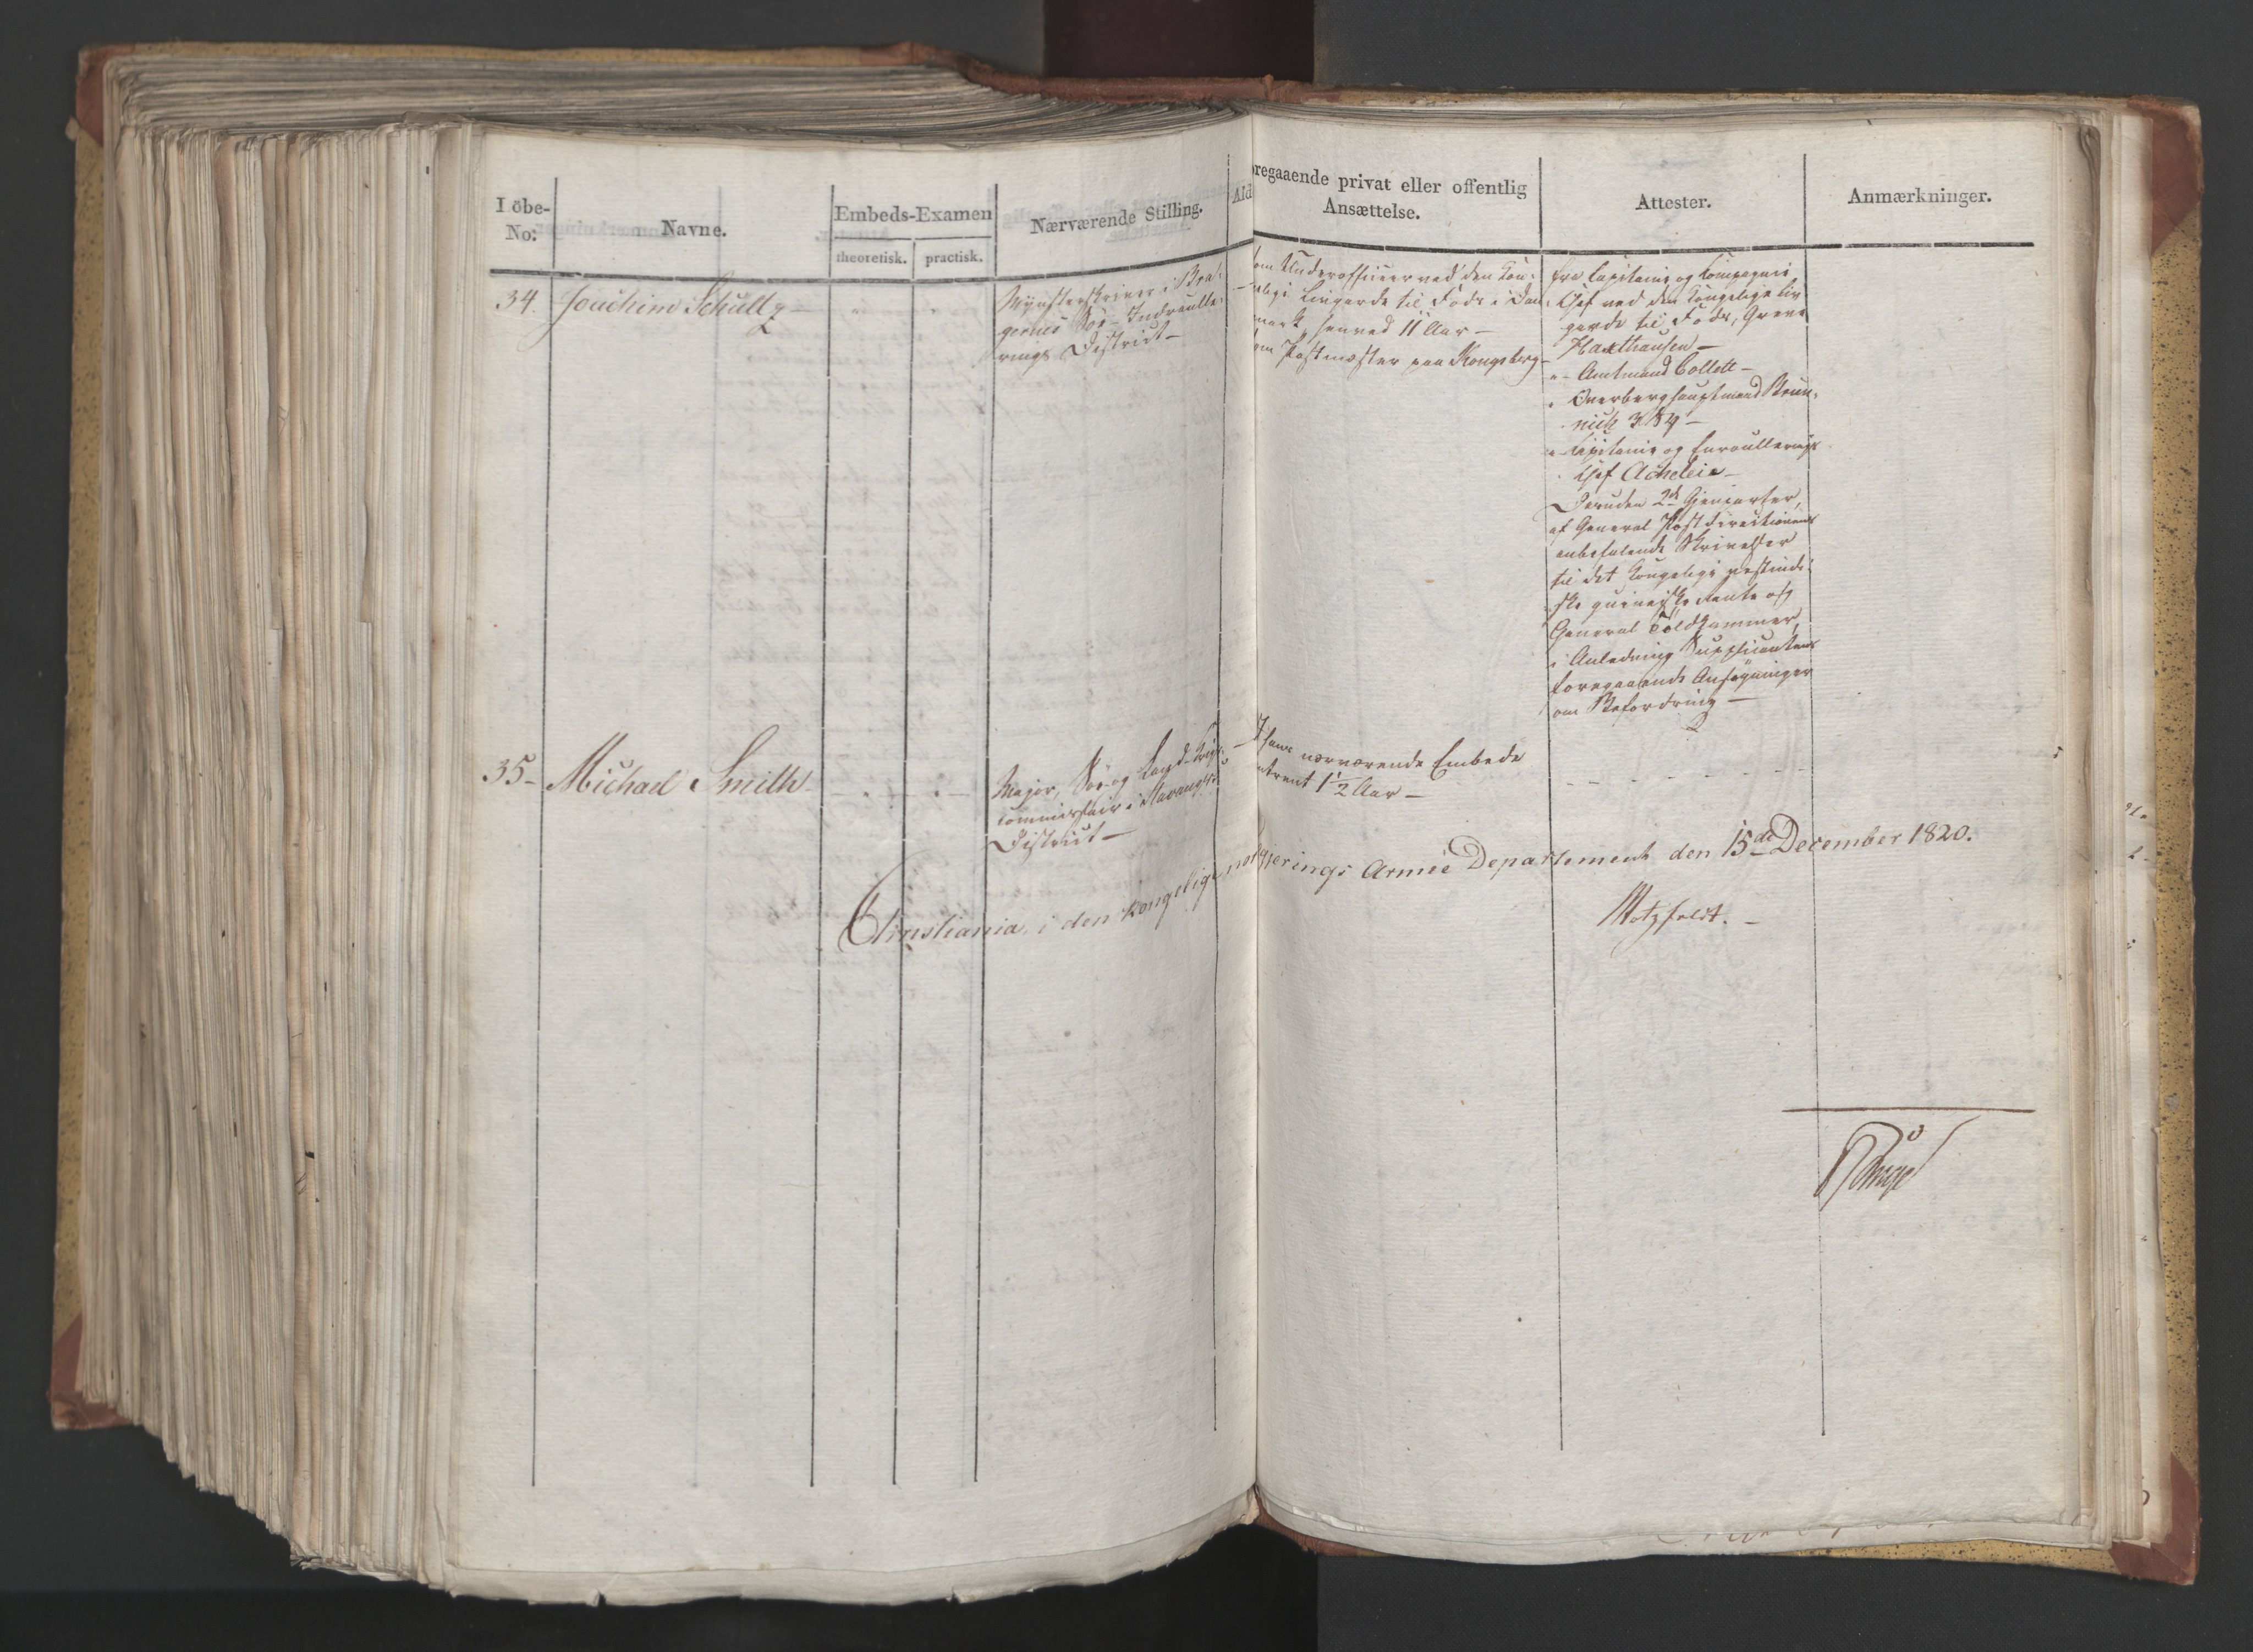 Löbe-
No:
Navne.
Embeds-Examen
theoretisk.
practisk.
Nærværende Stilling.
Ald
oregaaende privat eller offentlig
Ansættelse.
Attester.
Anmærkninger.
34.
Joachim Schultz —
Mynsterskriver i Bra-
gernes Söe-Indroulle-
rings District —
om Underofficeer ved den Kon-
gelige Livgarde til Fods i Dan-
mark, henved 11 Aar —
om Postmester paa Kongsberg —
fra Capitaine og Compagnie
Chef ved den Kongelige Liv-
garde til Fods, Greve
Haxthausen —
" — Amtmand Collett —
" Overberghauptmand Brün-
nich
" — Capitaine og Enroullerings
Chef Acheleie —
Desuden 2de Gjenparter,
af General Postdirectionens
anbefalende Skrivelser
til det Kongelige vestindi-
ske guineiske Rente og
General Toldkammer,
i Anledning Supplicantens
foregaaende Ansøgninger
om Befordring —
35 —
Michael Smith —
Major, Söe og Land-Krigs-
commissair i Stavangers
District —
I sine nærværende Embede
omtrent 1½ Aar —
Christiania, i den kongelige norske Regjerings Armee Departement den 15de December 1820.
Motzfeldt. —